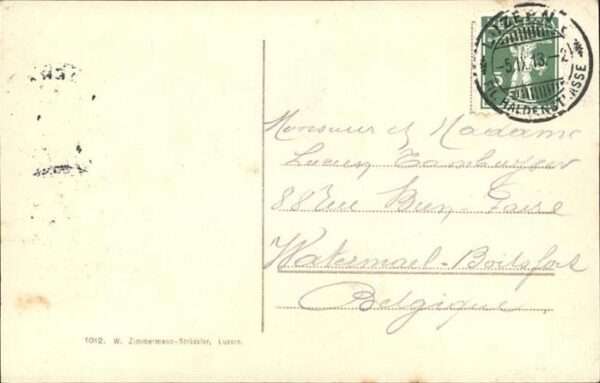 LUZERN
-5.IX.13.-2
HALDENSTRASSE
5
Monsieur et Madame
Lucien
88 rue Bien Faire
Watermael-Boitsfort
Belgique
1012. W. Zimmermann-Strässler, Luzern.